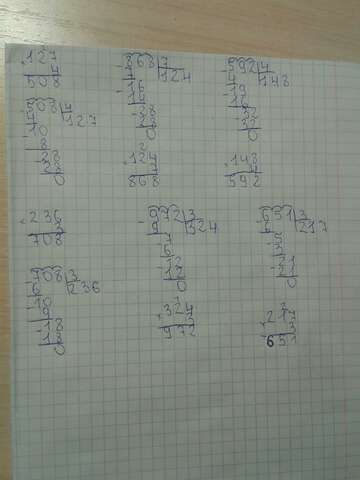 ×127
4
508
508|4
4 127
-10
8
-28
28
0
-868|7
7 124
-16
14
-28
28
0
×124
7
868
-592|4
4 148
-19
16
-32
32
0
×148
4
592
×236
3
708
-708|3
6 236
-10
9
-18
18
0
-972|3
9 324
-7
6
-12
12
0
×324
3
972
-651|3
6 217
-5
3
-21
21
0
2
×217
3
651